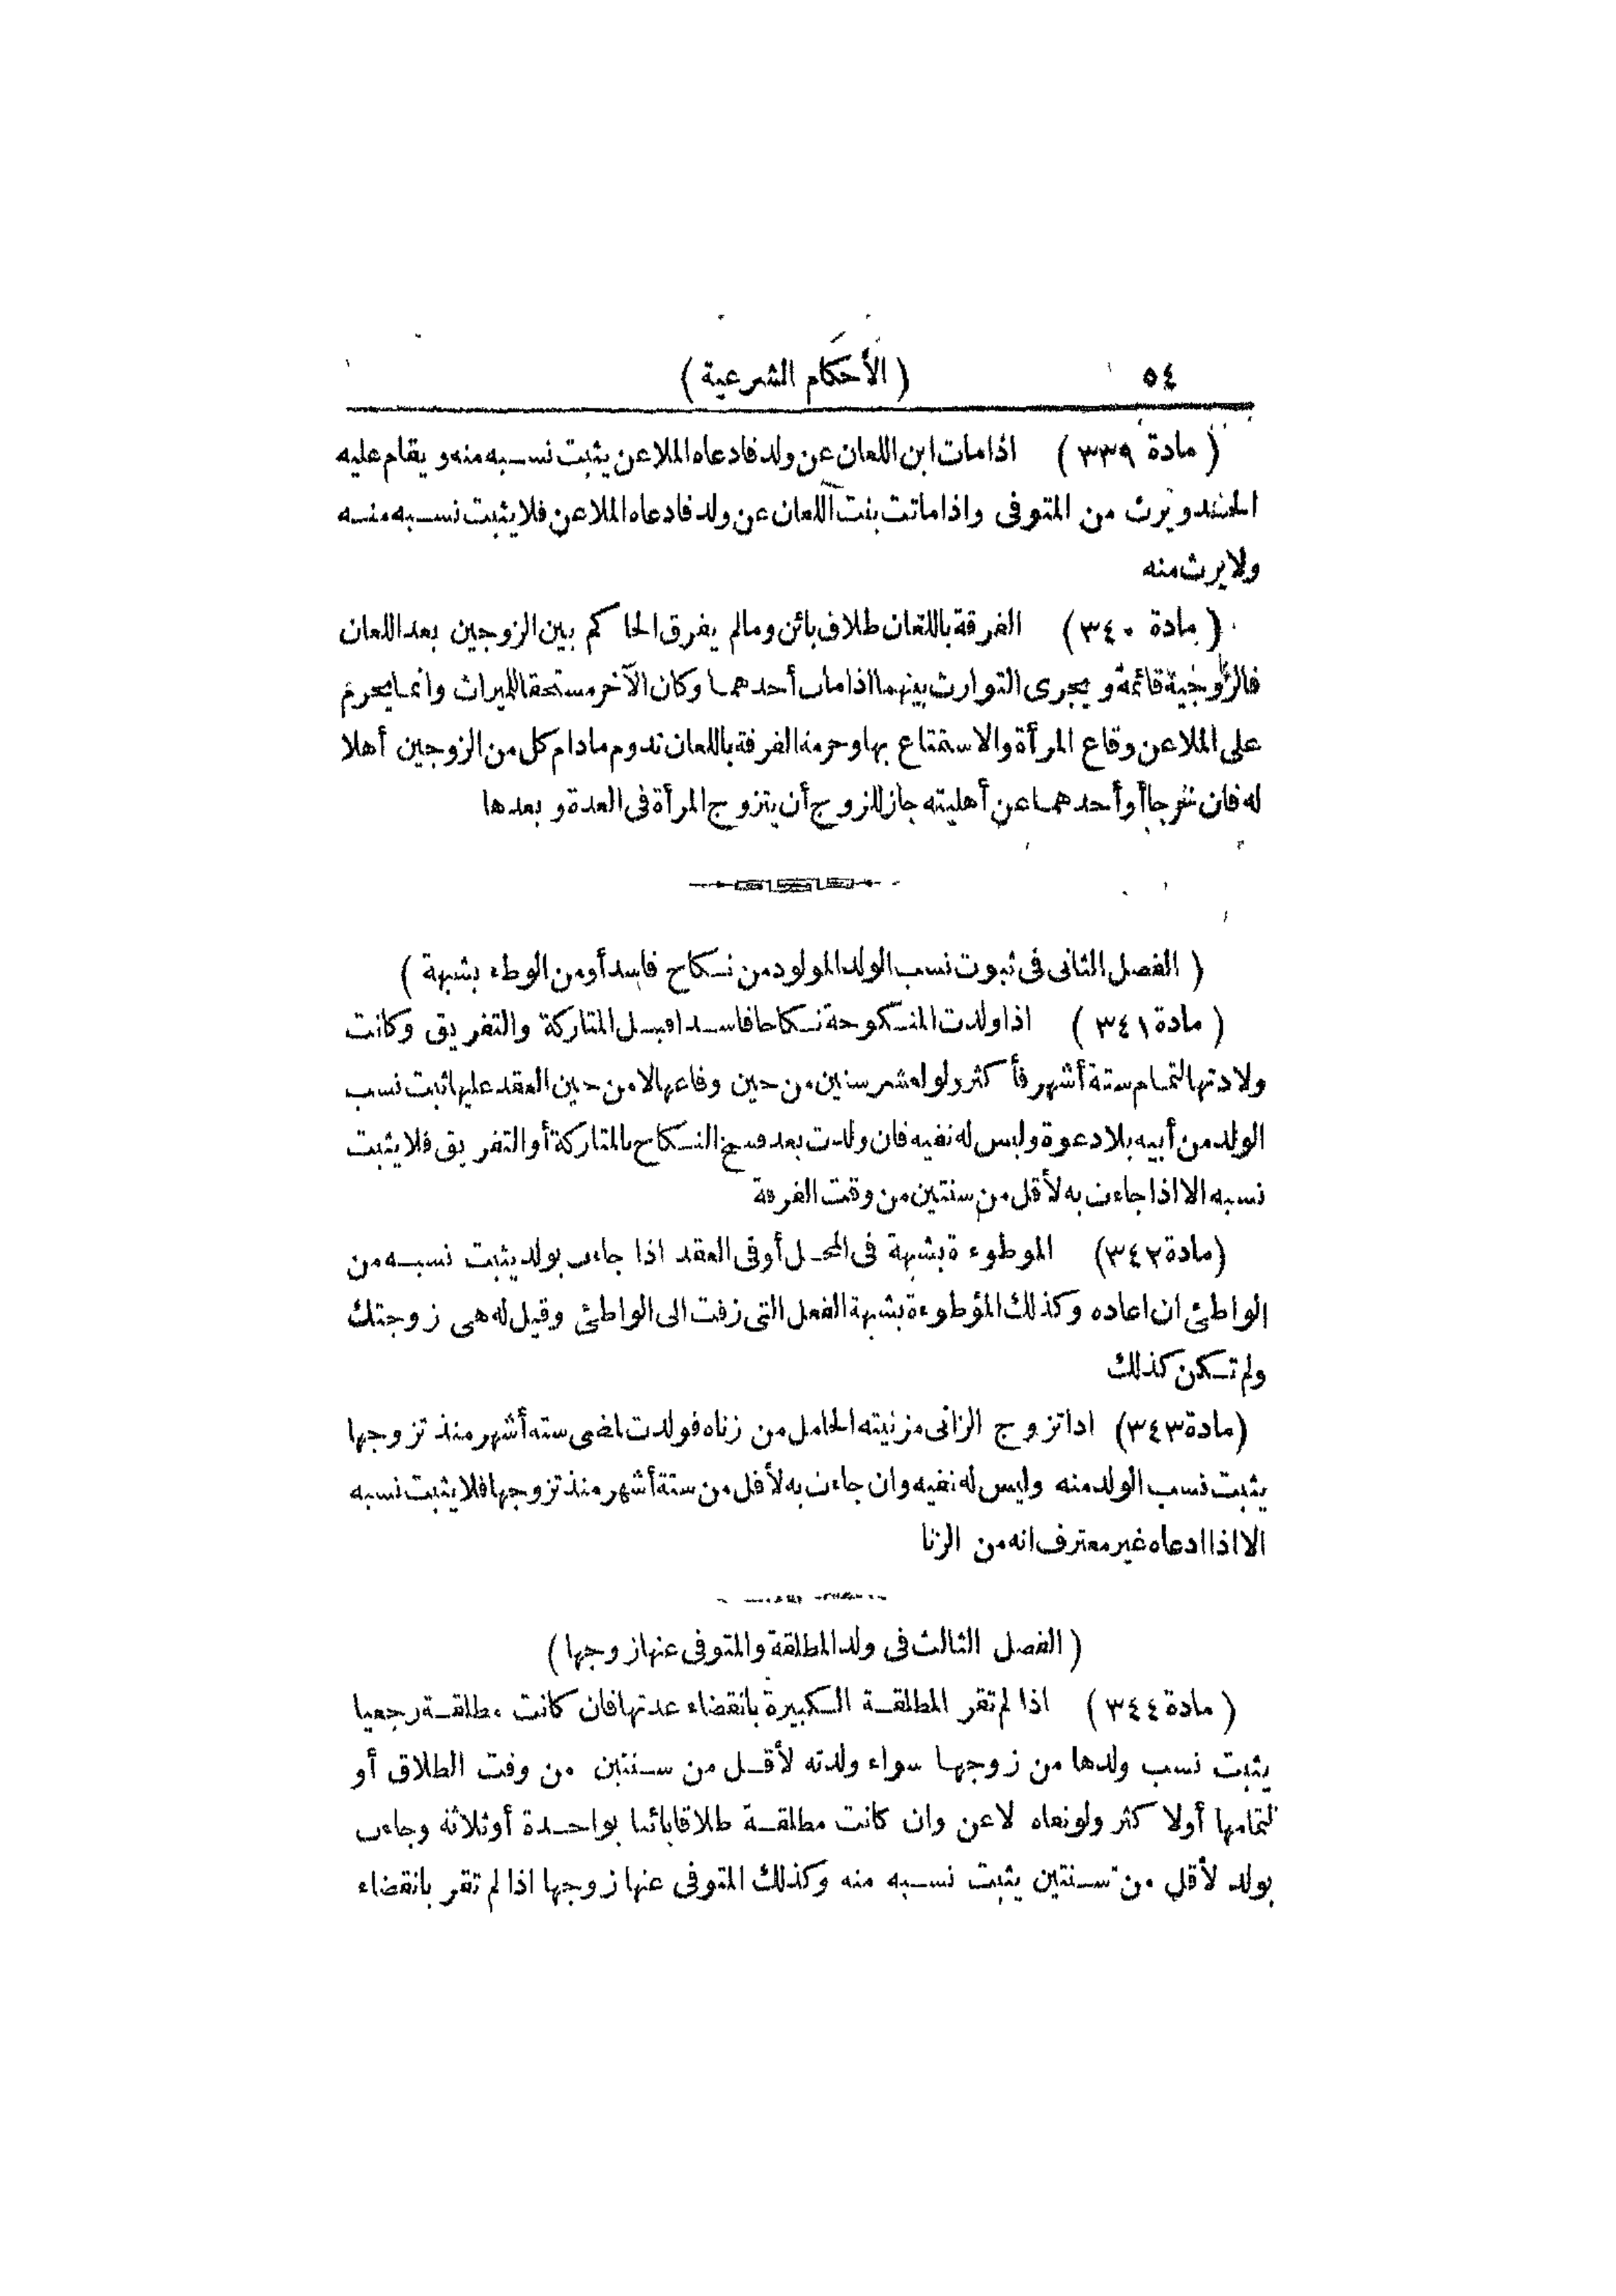 ٥٤ (الأحكام الشرعية)
(مادة ٣٣٩) اذا مات ابن اللعان عن ولد فادعاه الملاعن يثبت نسبه منه ويقام عليه
الحد ويرث من المتوفى واذا ماتت بنت اللعان عن ولد فادعاه الملاعن فلا يثبت نسبه منه
ولا يرث منه
(مادة ٣٤٠) الفرقة باللعان طلاق بائن ومالم يفرق الحاكم بين الزوجين بعد اللعان
فالزوجية قائمة ويجرى التوارث بينهما اذا مات أحدهما وكان الآخر مستحقا للميراث وانما يحرم
على الملاعن وقاع المرأة والاستمتاع بها وحرمة الفرقة باللعان تدوم مادام كل من الزوجين أهلا
له فان خرجا أو أحدهما عن أهليته جاز للزوج أن يتزوج المرأة فى العدة وبعدها
(الفصل الثانى فى ثبوت نسب الولد المولود من نكاح فاسد أو من الوطء بشبهة)
(مادة ٣٤١) اذا ولدت المنكوحة نكاحا فاسدا قبل المتاركة والتفريق وكانت
ولادتها لتمام ستة أشهر فأكثر ولو لعشر سنين من حين وقاعها لا من حين العقد عليها ثبت نسب
الولد من أبيه بلا دعوة وليس له نفيه فان ولدت بعد فسخ النكاح بالمتاركة أو التفريق فلا يثبت
نسبه الا اذا جاءت به لأقل من سنتين من وقت الفرقة
(مادة ٣٤٢) الموطوءة بشبهة فى المحل أو فى العقد اذا جاءت بولد يثبت نسبه من
الواطئ ان ادعاه وكذلك الموطوءة بشبهة الفعل التى زفت الى الواطئ وقيل له هى زوجتك
ولم تكن كذلك
(مادة ٣٤٣) اذا تزوج الزانى مزنيته الحامل من زناه فولدت لمضى ستة أشهر منذ تزوجها
يثبت نسب الولد منه وليس له نفيه وان جاءت به لأقل من ستة أشهر منذ تزوجها فلا يثبت نسبه
الا اذا ادعاه غير معترف انه من الزنا
(الفصل الثالث فى ولد المطلقة والمتوفى عنها زوجها)
(مادة ٣٤٤) اذا لم تقر المطلقة الكبيرة بانقضاء عدتها فان كانت مطلقة رجعيا
يثبت نسب ولدها من زوجها سواء ولدته لأقل من سنتين من وقت الطلاق أو
لتمامها أو لا كثر ولو نفاه لاعن وان كانت مطلقة طلاقا بائنا بواحدة أو ثلاثة وجاءت
بولد لأقل من سنتين يثبت نسبه منه وكذلك المتوفى عنها زوجها اذا لم تقر بانقضاء